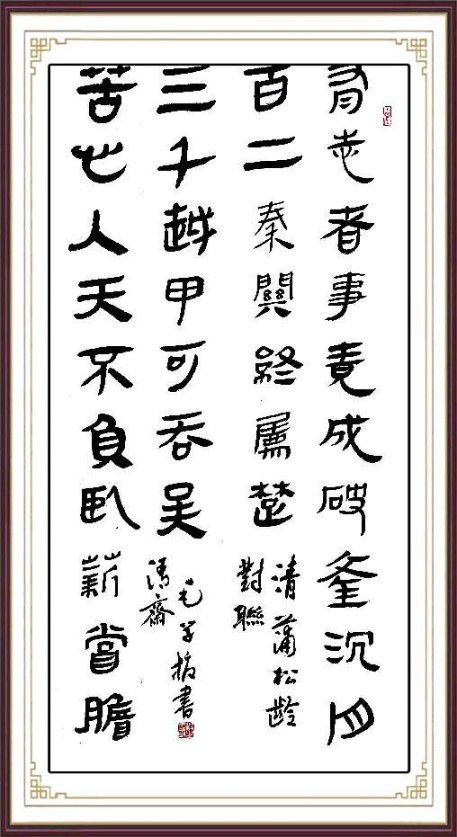 有志者事竟成破釜沉舟
百二秦關終屬楚
清蒲松齡
對聯
苦心人天不負臥薪嘗膽
三千越甲可吞吳
毛 書
清齋